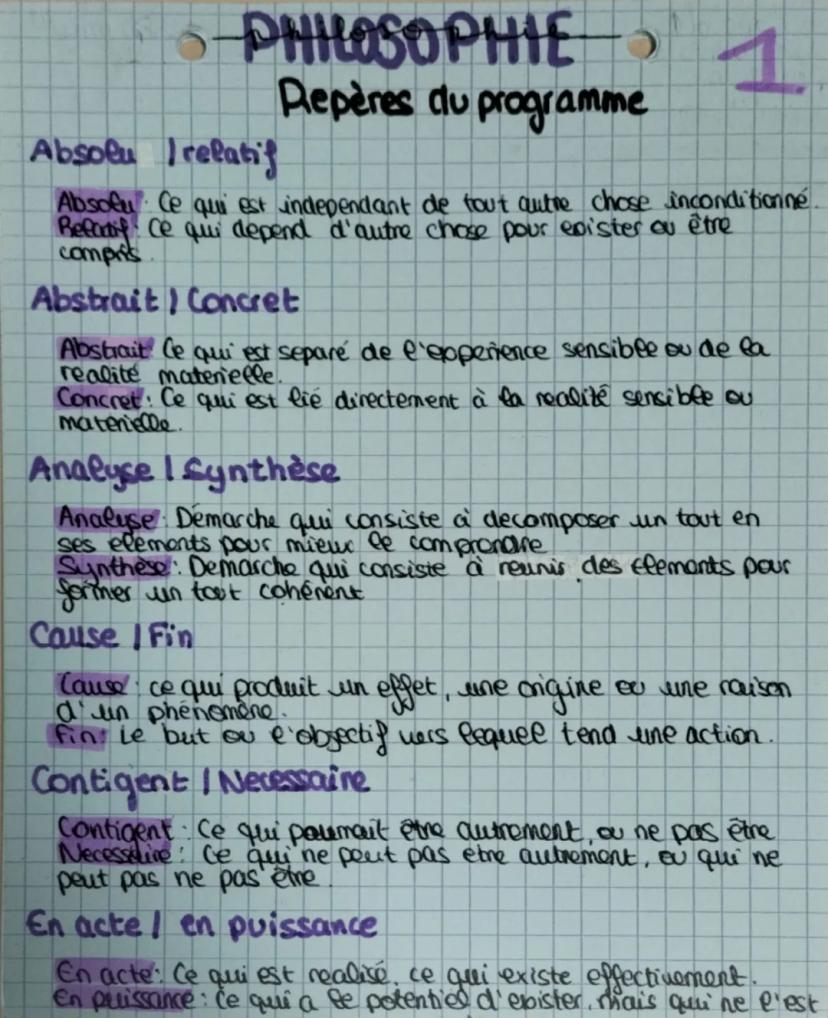 PHILOSOPHIE
1
Repères du programme
Absolu | relatif
Absolu : Ce qui est independant de tout autre chose inconditionné.
Relatif : Ce qui depend d'autre chose pour exister ou être
compris.
Abstrait | Concret
Abstrait : Ce qui est separé de l'experience sensible ou de la
realité materielle.
Concret : Ce qui est lié directement à la realité sensible ou
materielle.
Analyse | Synthèse
Analyse : Démarche qui consiste à decomposer un tout en
ses elements pour mieux le comprendre
Synthèse : Demarche qui consiste à reunir des elements pour
former un tout cohérent
Cause | Fin
Cause : ce qui produit un effet, une origine ou une raison
d'un phénomène.
Fin : Le but ou l'objectif vers lequel tend une action.
Contigent | Necessaire
Contigent : Ce qui pourrait être autrement, ou ne pas être
Necessaire : Ce qui ne peut pas etre autrement, ou qui ne
peut pas ne pas être.
En acte | en puissance
En acte : Ce qui est realisé, ce qui existe effectivement.
En puissance : Ce qui a le potentiel d'exister, mais qui ne l'est